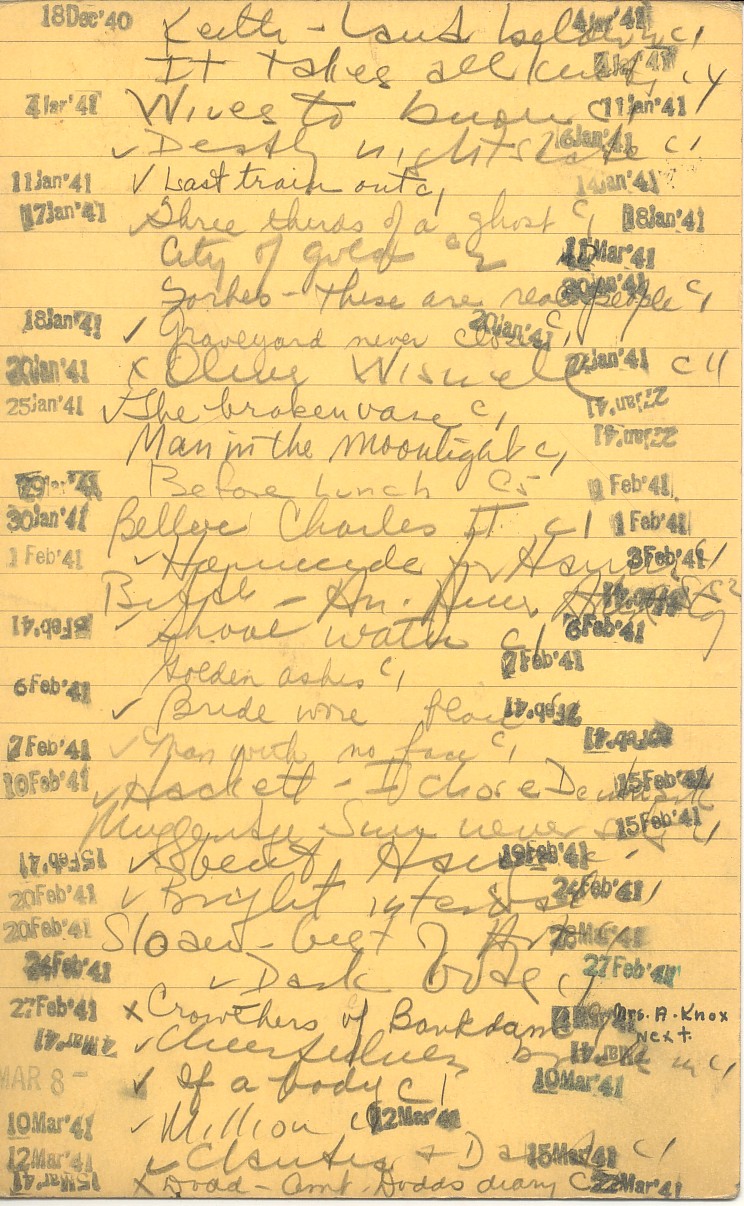 18Dec'40 Keith - Land below c1 4Jan'41
It takes all kinds c4 4Jan'41
4Jan'41 Wives to burn c1 11Jan'41
✓ Deadly nightshade c1 16Jan'41
11Jan'41 ✓ Last train out c1 14Jan'41
17Jan'41 Three thirds of a ghost c1 18Jan'41
City of gold c2 11Mar'41
Forbes - These are real people c1 20Jan'41
18Jan'41 ✓ Graveyard never closes c1 20Jan'41
20Jan'41 x Oliver Wiswell c11 22Jan'41
25Jan'41 ✓ The broken vase c1 27Jan'41
Man in the moonlight c1 27Jan'41
29Jan'41 Before lunch c5 1 Feb'41
30Jan'41 Belloc Charles II c1 1 Feb'41
1 Feb'41 ✓ Homicide for c1 3Feb'41
An. Amer c2
5Feb'41 ✓ Shoal water c1 6Feb'41
Golden ashes c1 7Feb'41
6Feb'41 ✓ Bride wore black 7Feb'41
7Feb'41 ✓ Man with no face c1
10Feb'41 ✓ Hackett - I chose Denmark 15Feb'41
Muggeridge Sun never sets c1 15Feb'41
15Feb'41 ✓ 19Feb'41
20Feb'41 ✓ Bright 24Feb'41
20Feb'41 Sloan - Art
24Feb'41 ✓ Dark c1 27Feb'41
27Feb'41 x Crowthers of Bankdam Mrs. A. Knox
Next
4Mar'41 ✓ c1
MAR 8 - ✓ If a body c1 10Mar'41
10Mar'41 ✓ Million c1 12Mar'41
12Mar'41 ✓ c1 15Mar'41
15Mar'41 x Dodd - Amb. Dodds diary c2 22Mar'41